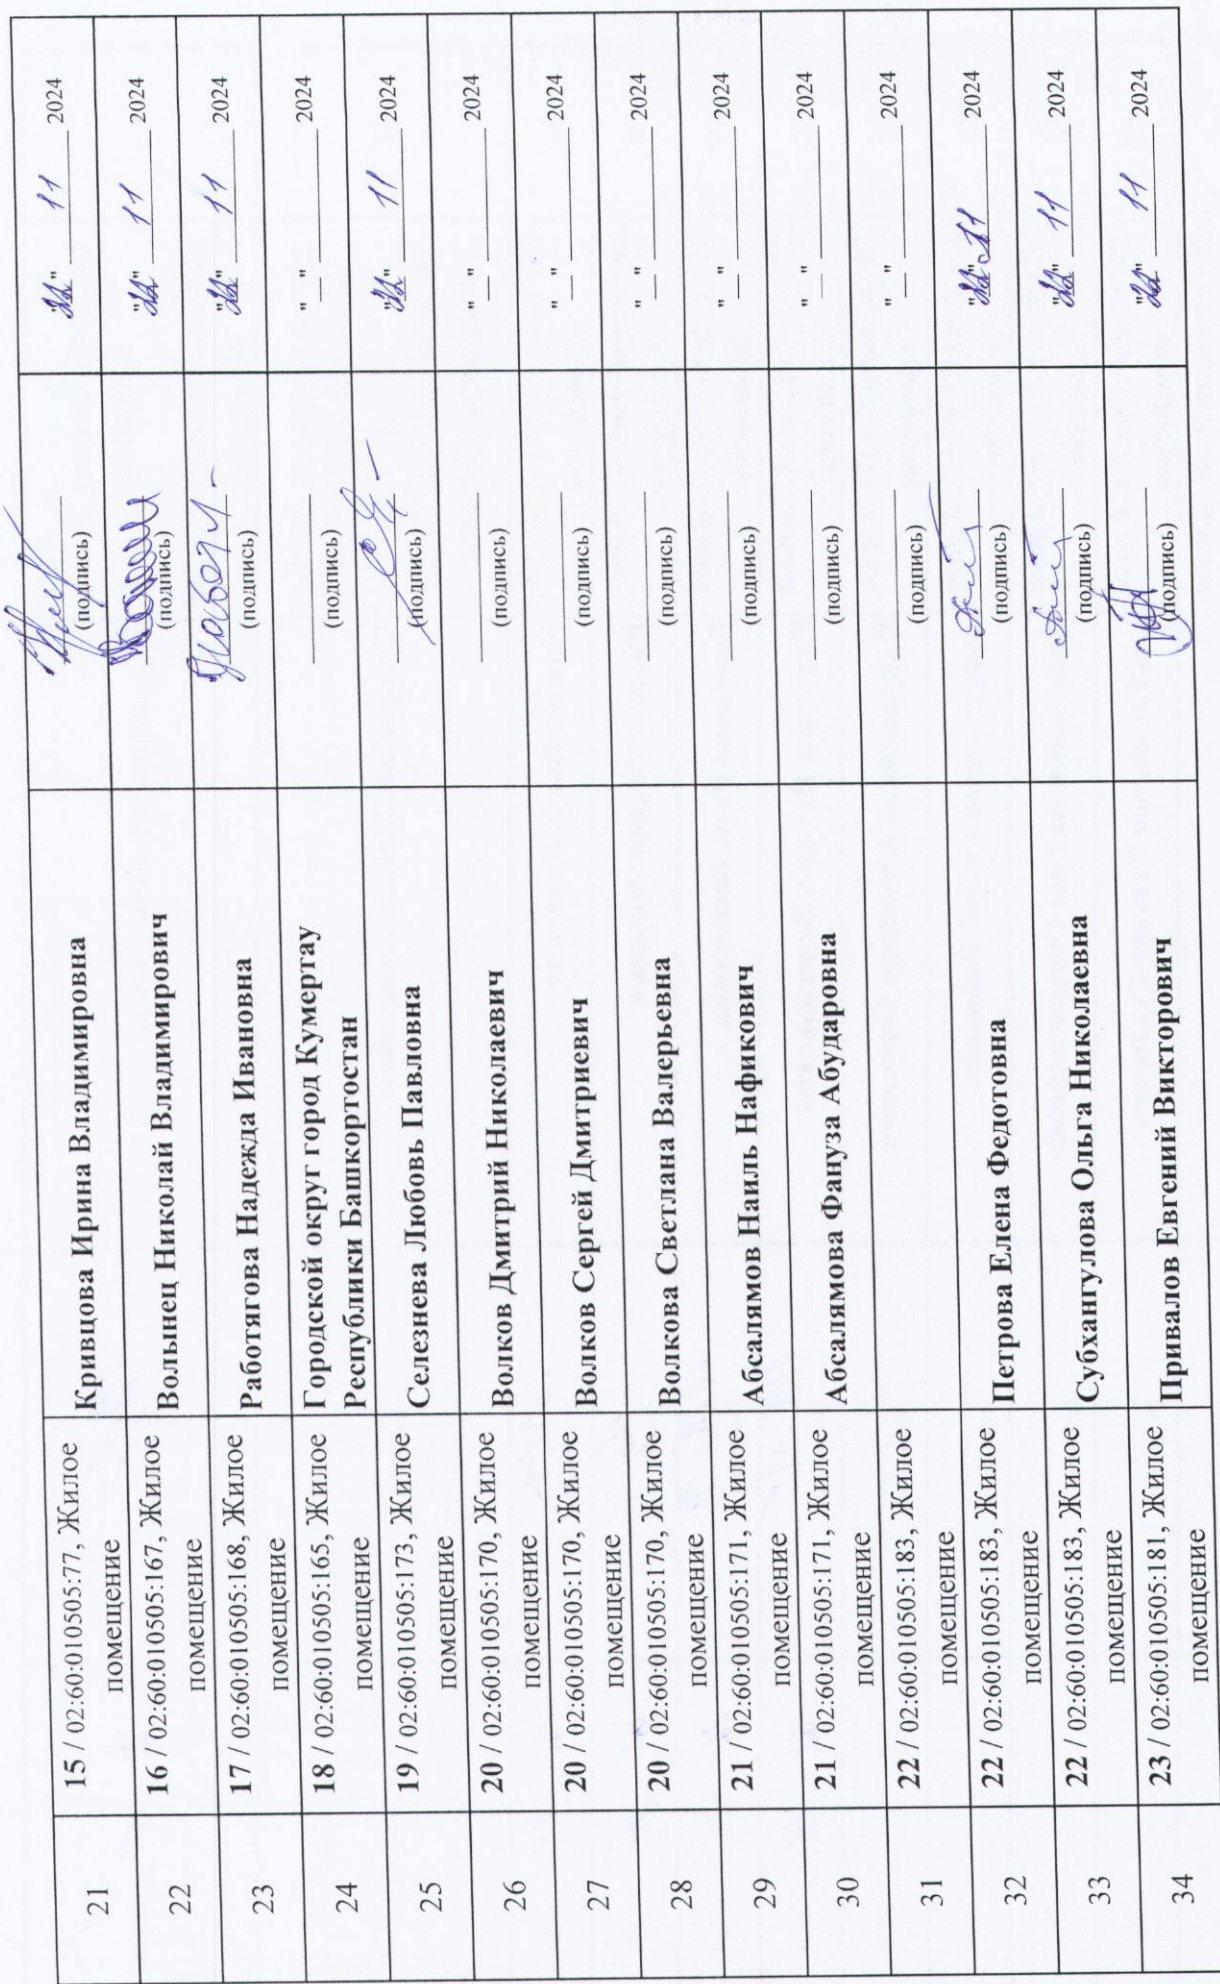 21
15 / 02:60:010505:77, Жилое
помещение
Кривцова Ирина Владимировна
(подпись)
" " 11 2024
22
16 / 02:60:010505:167, Жилое
помещение
Волынец Николай Владимирович
(подпись)
" " 11 2024
23
17 / 02:60:010505:168, Жилое
помещение
Работягова Надежда Ивановна
(подпись)
" " 11 2024
24
18 / 02:60:010505:165, Жилое
помещение
Городской округ город Кумертау
Республики Башкортостан
(подпись)
"_" 2024
25
19 / 02:60:010505:173, Жилое
помещение
Селезнева Любовь Павловна
(подпись)
" " 11 2024
26
20 / 02:60:010505:170, Жилое
помещение
Волков Дмитрий Николаевич
(подпись)
"_" 2024
27
20 / 02:60:010505:170, Жилое
помещение
Волков Сергей Дмитриевич
(подпись)
"_" 2024
28
20 / 02:60:010505:170, Жилое
помещение
Волкова Светлана Валерьевна
(подпись)
"_" 2024
29
21 / 02:60:010505:171, Жилое
помещение
Абсалямов Наиль Нафикович
(подпись)
"_" 2024
30
21 / 02:60:010505:171, Жилое
помещение
Абсалямова Фануза Абударовна
(подпись)
"_" 2024
31
22 / 02:60:010505:183, Жилое
помещение
(подпись)
"_" 2024
32
22 / 02:60:010505:183, Жилое
помещение
Петрова Елена Федотовна
(подпись)
" " 11 2024
33
22 / 02:60:010505:183, Жилое
помещение
Субхангулова Ольга Николаевна
(подпись)
" " 11 2024
34
23 / 02:60:010505:181, Жилое
помещение
Привалов Евгений Викторович
(подпись)
" " 11 2024